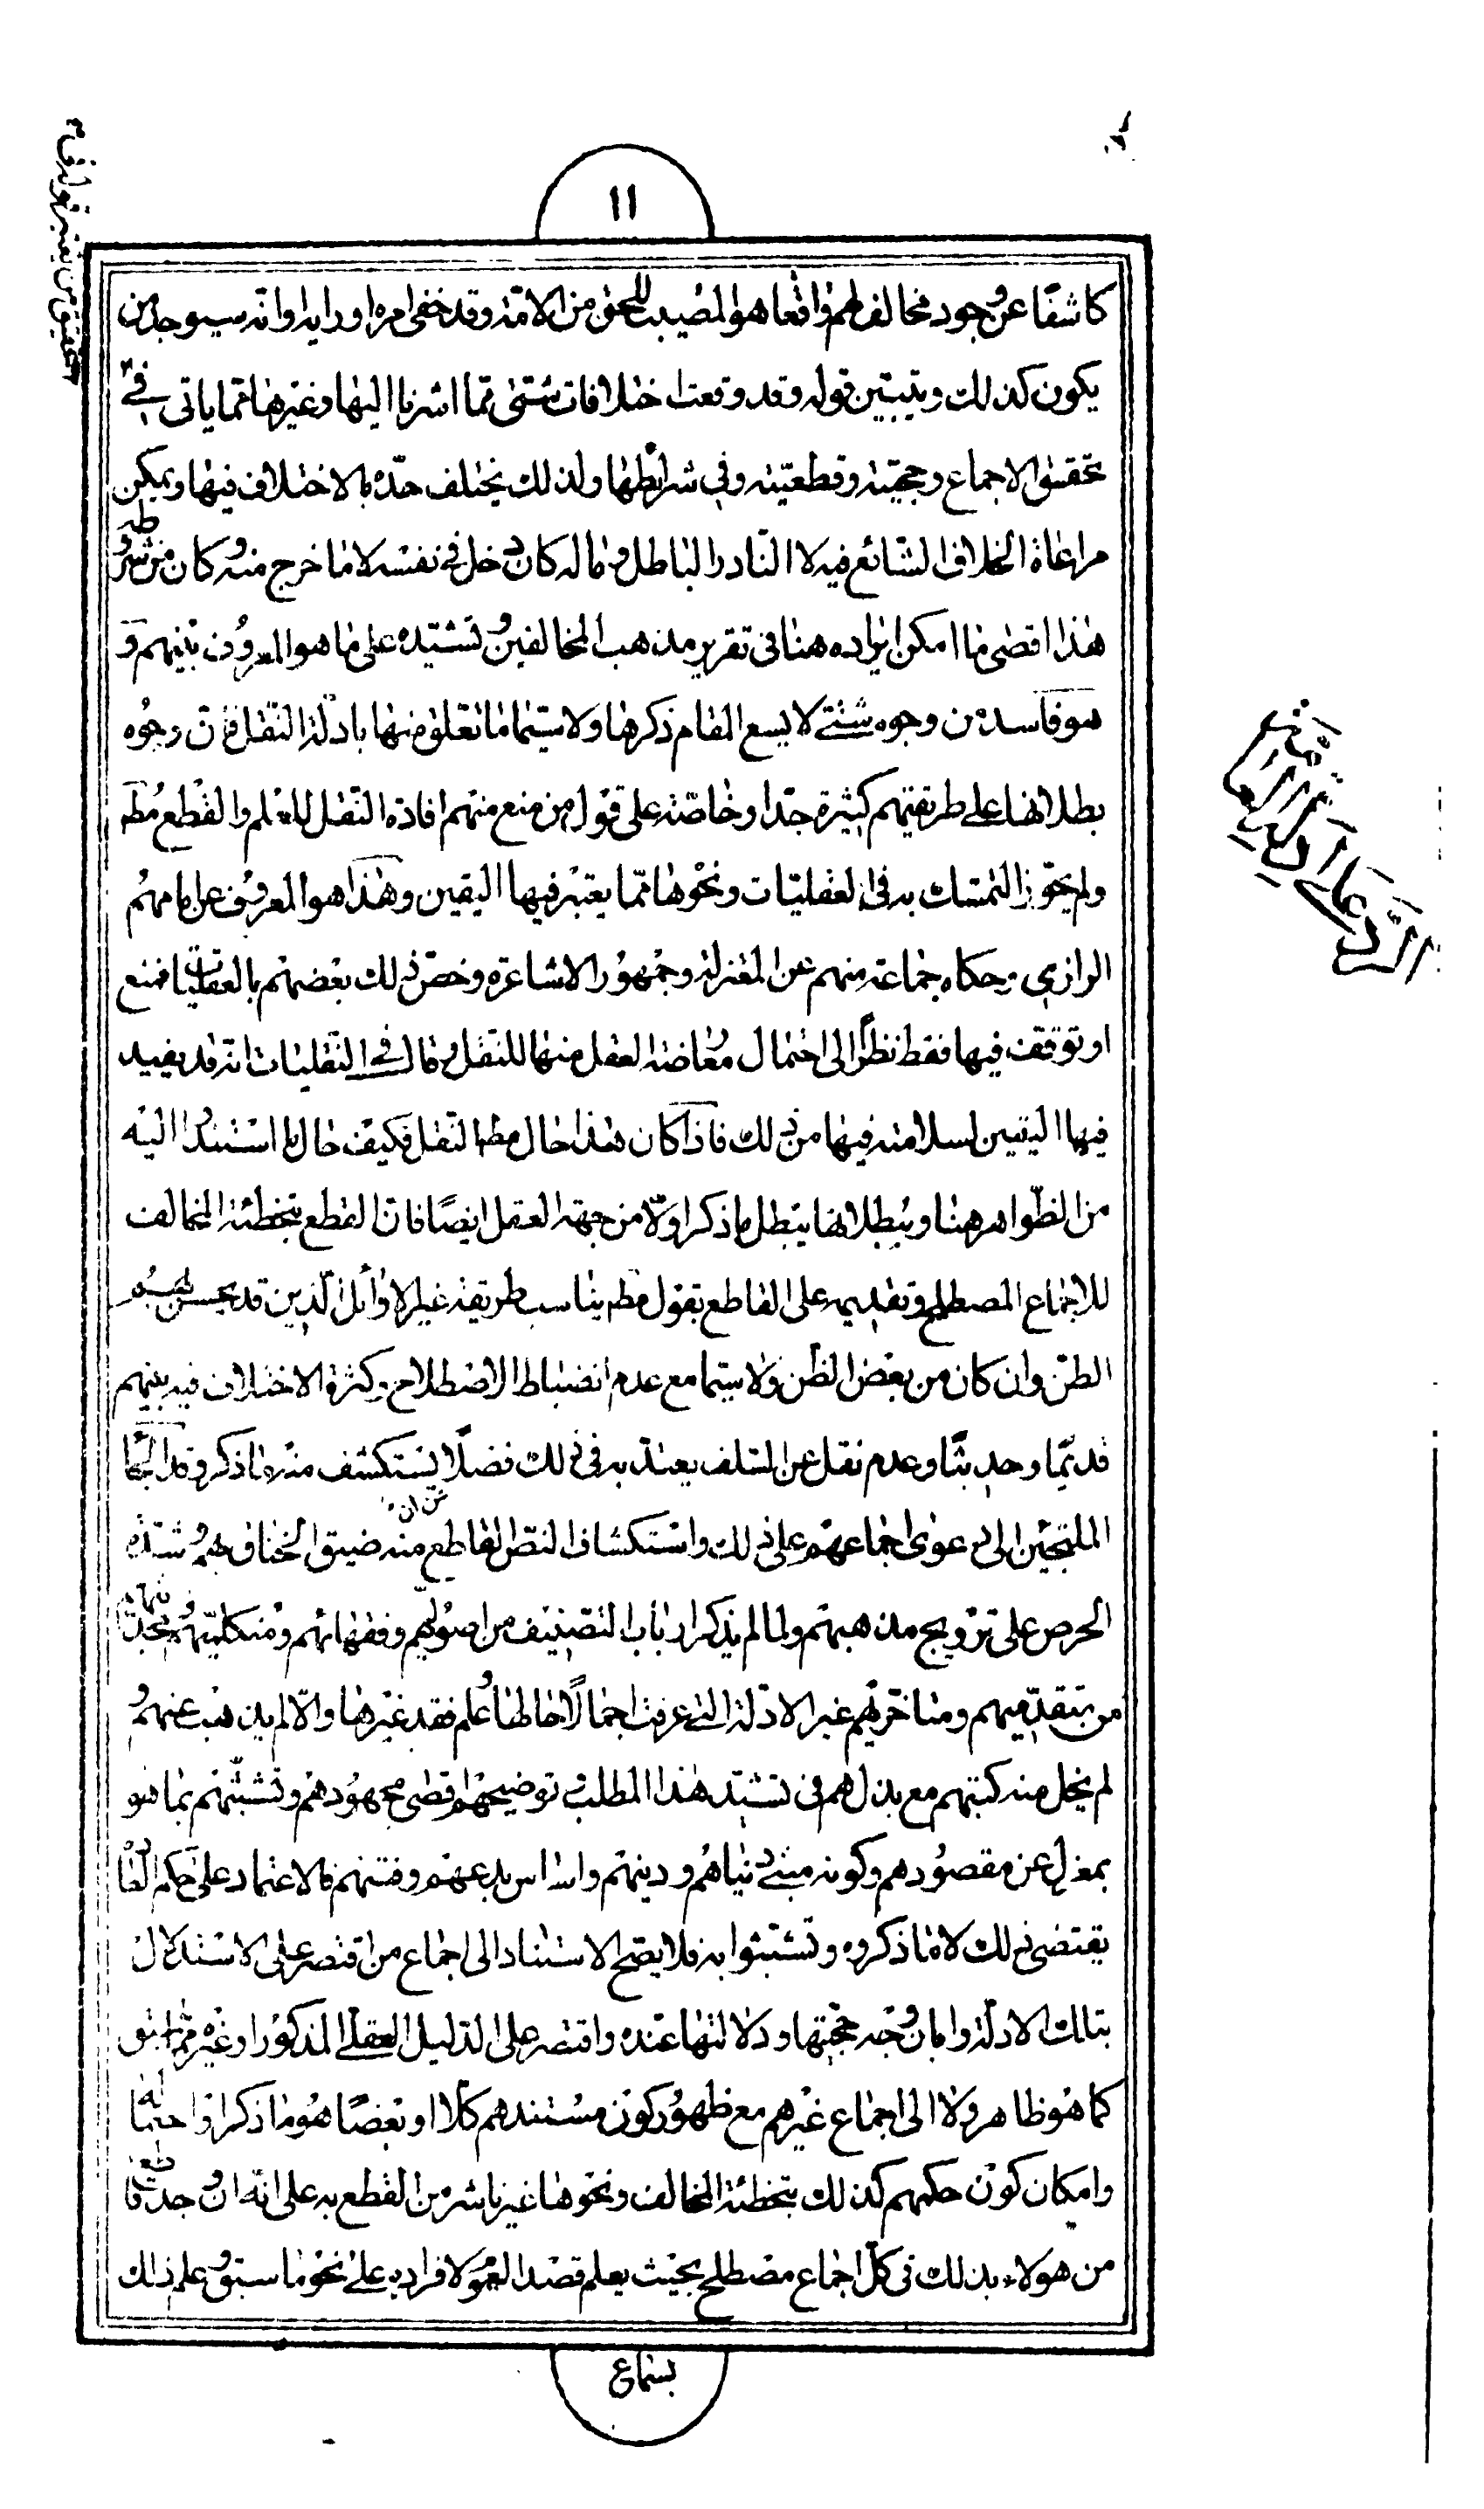 ١١
كاشفًا عن وجود مخالف لهم واقعا هو المصيب للحق من الامّة وقد خفى امره او رايه او انه سيوجد من
يكون كذلك ويتبين قوله وقد وقعت اختلافات شتى مما اشرنا اليها وغيرها مما ياتى فى
تحقق الاجماع وحجيته وقطعيته وفى شرائطها ولذلك يختلف حدّه بالاختلاف فيها ويمكن
مراعاة الخلاف الشائع فيه لا النادر الباطل وما له كان دخل فى نفسه لا ما خرج منه وكان من شروطه
هذا اقصى ما امكن ايراده هنا فى تقرير مذهب المخالفين وتشييده على ما هو المعروف بينهم و
هو فاسد من وجوه شتى لا يسع المقام ذكرها ولا سيّما ما تعلق منها بادلة النقل فان وجوه
بطلانها على طريقتهم كثيرة جدّا وخاصّة على قول من منع منهم افادة النقل للعلم والقطع مط
ولم يجوز التمسك به فى العقليّات ونحوها ممّا يعتبر فيها اليقين وهذا هو المعروف عن امامهم
الرازى وحكاه جماعة منهم عن المعتزلة وجمهور الاشاعره وخص ذلك بعضهم بالعقليات فمنع
او توقف فيها فقط نظرًا الى احتمال معارضة العقل منها للنقل وقال فى النقليات انه قد يفيد
فيها اليقين لسلامته فيها من ذلك فاذا كان هذا حال مط النقل فكيف حال ما استندوا اليه
من الظواهر هنا وببطلانها يبطل ما ذكر اولا من جهة العقل ايضًا فان القطع بتخطئة المخالف
للاجماع المصطلح وتقديمه على القاطع بقول مط يناسب طريقة غير الاوائل الذين قد يحسن بهم
الظن وان كان من بعض الظن ولا سيّما مع عدم انضباط الاصطلاح وكثرة الاختلاف فيه بينهم
قديمًا وحديثًا وعدم نقل عن السلف يعتد به فى ذلك فضلًا ان يستكشف منه ما ذكر وقد الجأ
الملتجئين الى دعوى اجماعهم على ذلك واستكشاف النص القاطع منه ضيق الخناق بهم وشدة
الحرص على ترويج مذهبهم ولما لم يذكر ارباب التصنيف من اصوليهم وفقهائهم ومتكلميهم
من متقدميهم ومتاخريهم غير الادلة التى عرفت اجمالًا حالها علم فقد غيرها والّا لم يذهب عنهم و
لم يخل منه كتبهم مع بذلهم فى تشييد هذا المطلب وتوضيحه اقصى مجهودهم وتشبثهم بما هو
بمعزل عن مقصودهم وكونه مبنى دنياهم ودينهم واساس بدعهم وفتنهم فالاعتماد على حكم العادة
يقتضى ذلك لا ما ذكروه وتشبثوا به فلا يصح الاستناد الى اجماع من اقتصر على الاستدلال
بتلك الادلة وابان وجه حجّيتها ودلالتها عنده واقتصر على الدليل العقلى المذكور او غيره مما سبق
كما هو ظاهر ولا الى اجماع غيرهم مع ظهور كون مستندهم كلا او بعضًا هو ما ذكر او احتماله
وامكان كون حكمهم كذلك بتخطئة المخالف ونحوها غير ناش من القطع به على انه ان وجد قاطع
من هؤلاء بذلك فى كل اجماع مصطلح بحيث يعلم قصد العموم لافراده على نحو ما سبق وعلم ذلك
بسماع